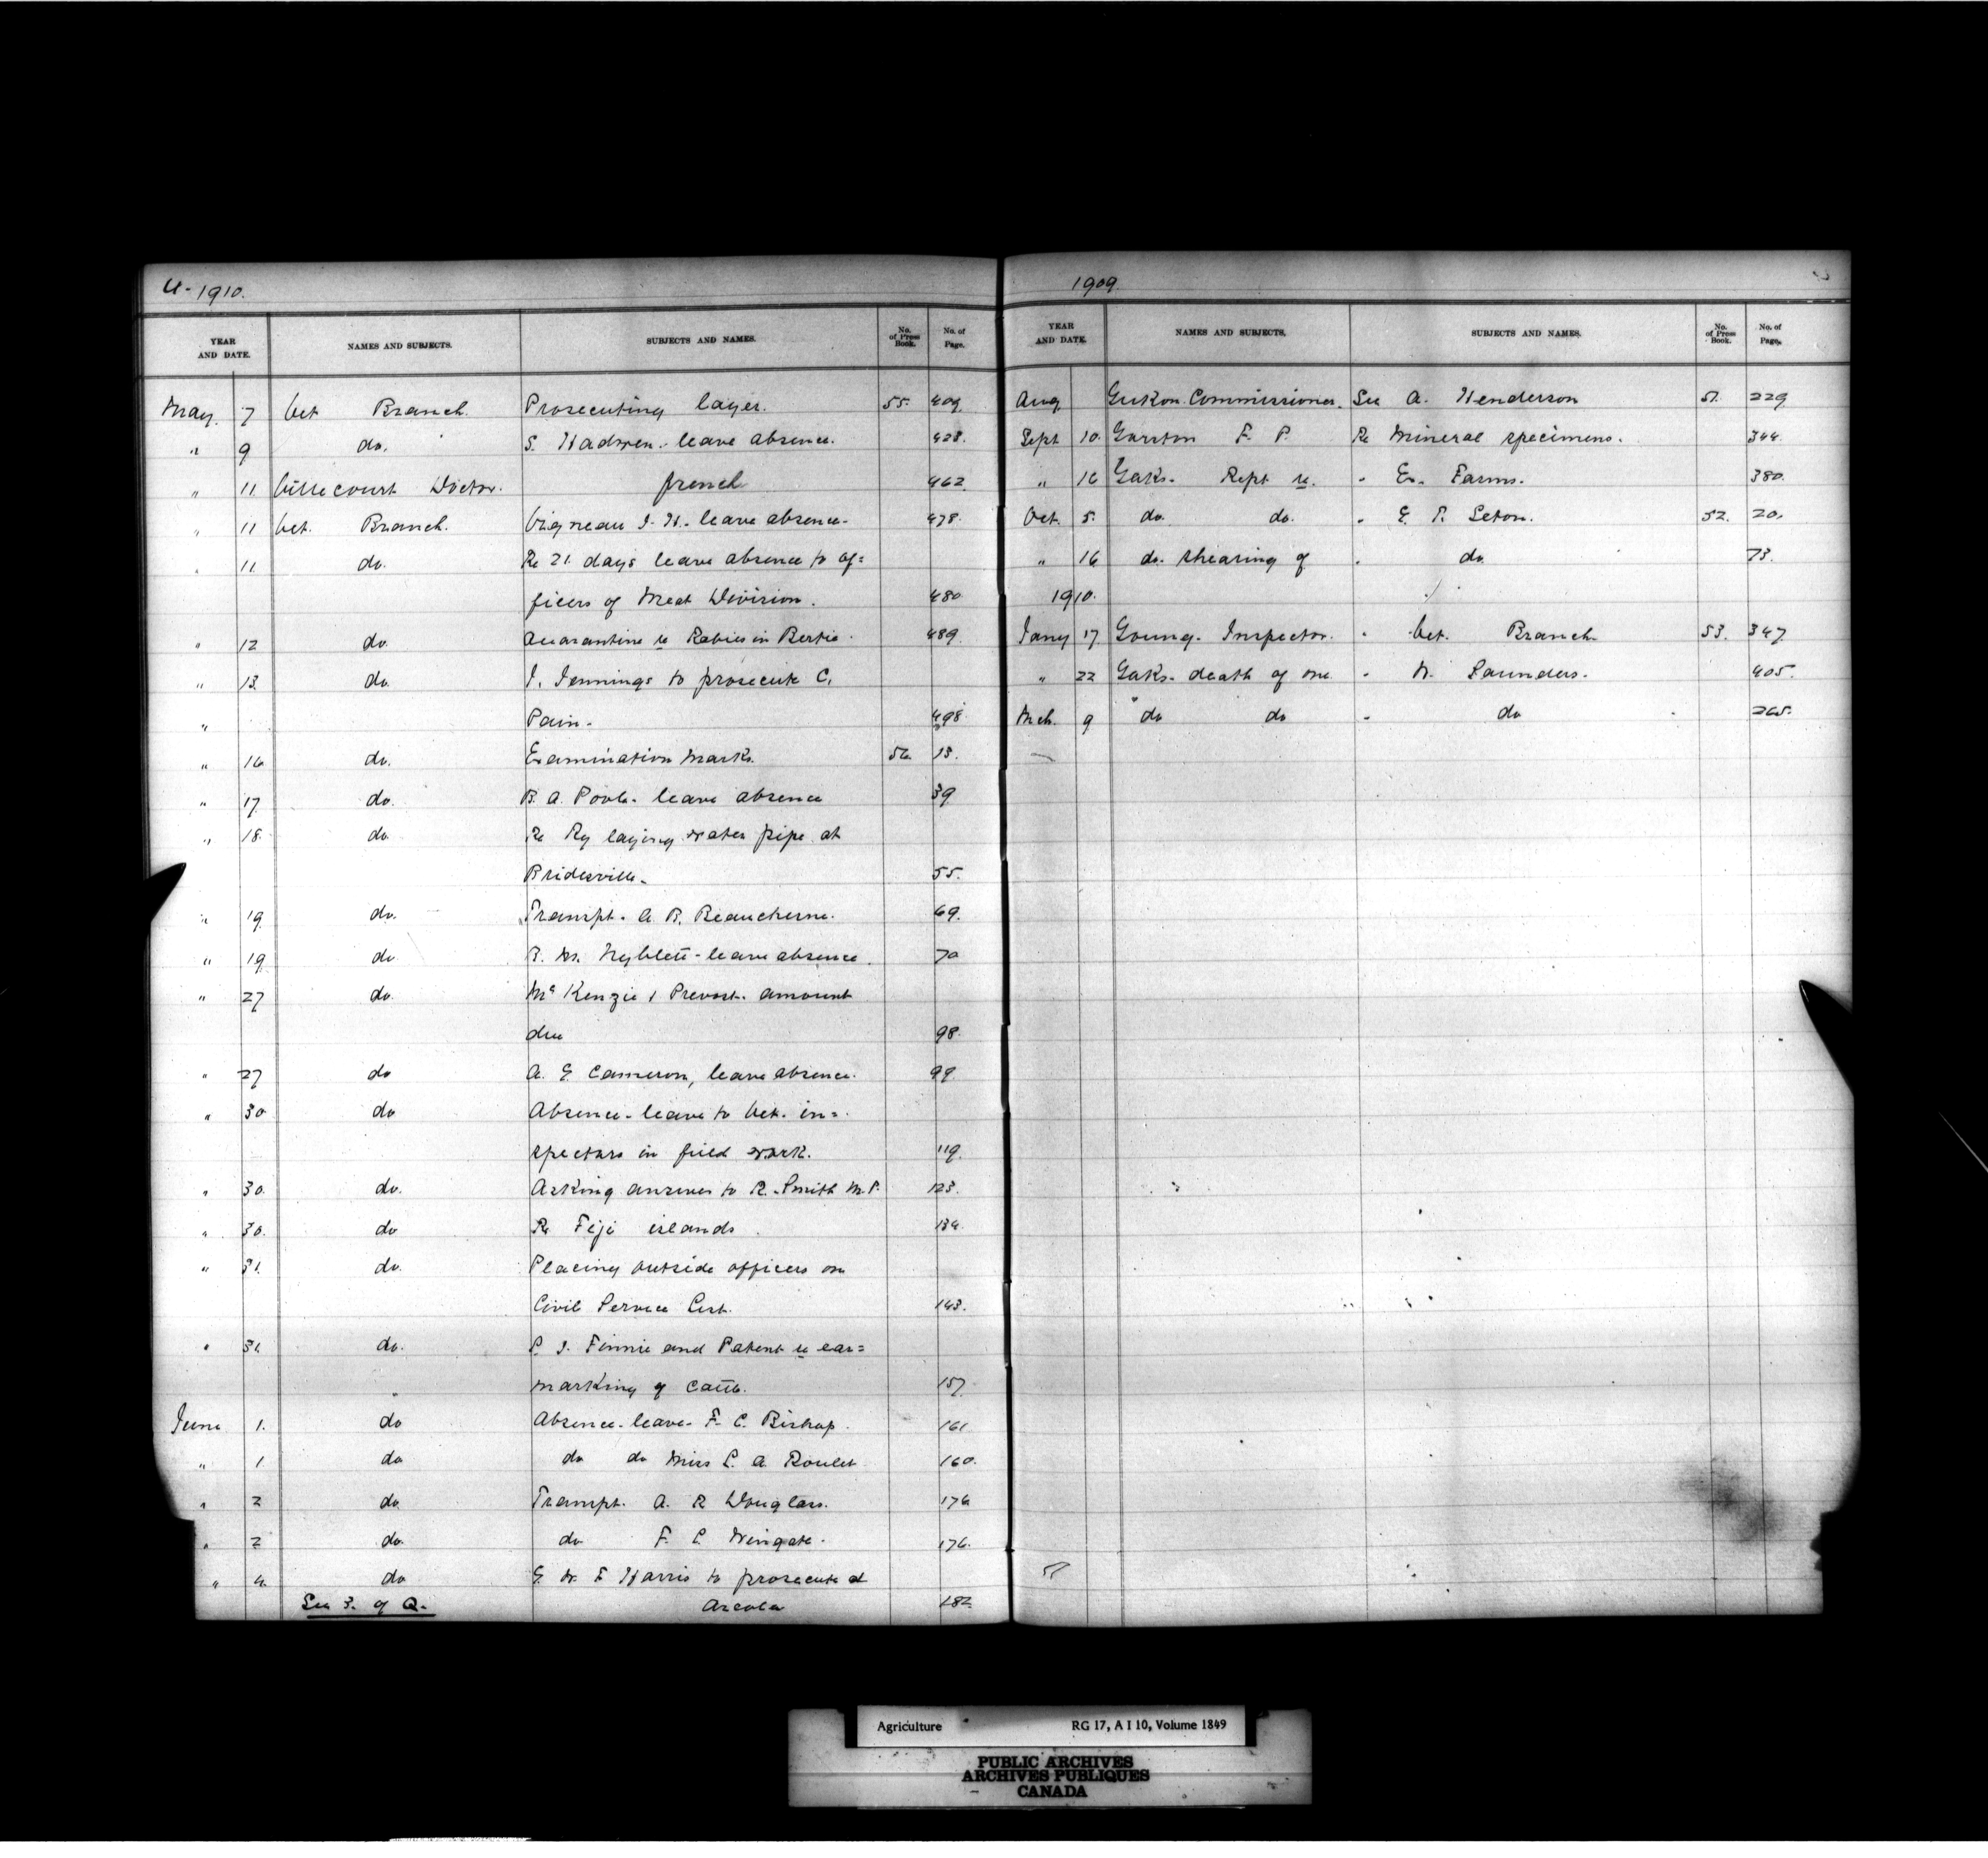 U- 1910.
YEAR AND DATE. NAMES AND SUBJECTS. SUBJECTS AND NAMES. No. of Press Book. No. of Page.
May. 7 Vet Branch. Prosecuting Layer. 55. 409.
" 9 do. S. Hadwen. leave absence. 428.
" 11. Villecourt Victor. french 462.
" 11 Vet. Branch. Vigneau J. H. leave absence. 478.
" 11. do. Re 21. days leave absence to of=
ficers of Meat Division. 480
" 12 do. Quarantine re Rabies in Bertie. 489.
" 13. do. J. Jennings to prosecute C.
" Pain. 498
" 16 do. Examination Marks. 56. 13.
" 17 do. B. A. Poole. leave absence 39
" 18. do Re Ry laying water pipe at
Bridesville. 55.
" 19 do. Transpt. A. R. Beaucherne. 69.
" 19. do R. M. Nyblett - leave absence. 70
" 27 do. McKenzie & Prevost. amount
due 98.
" 27 do A. E. Cameron, leave absence. 99.
" 30 do Absence - leave to Vet. in=
spectors in field work. 119.
" 30. do. Asking answer to R. Smith M.P. 123.
" 30. do Re Fiji islands. 134.
" 31. do. Placing outside officers on
Civil Service List. 143.
" 31. do. P. J. Finnie and Patent re ear=
" marking of cattle. 157.
June 1. do Absence - leave - F. C. Bishop. 161
" 1 do do do Miss L. A. Roulet 160.
" 2 do. Transpt. A. R Douglass. 176
" 2 do. do F. L. Wingate. 176.
" 4. do E. W. F. Harris to prosecute at
See 3. of Q. Arcola 182.
1909.
YEAR AND DATE. NAMES AND SUBJECTS. SUBJECTS AND NAMES. No. of Press Book. No. of Page.
Aug Yukon Commissioner. See A. Henderson 51. 229
Sept. 10. Yarston F. P. Re Mineral specimens. 344.
" 16 Yaks. Rept re. " Ex. Farms. 380.
Oct. 5. do. do. " E. T. Seton. 52. 20.
" 16 do. shearing of " do. 73.
1910.
Jany 17. Young. Inspector. " Vet. Branch 53. 347.
" 22 Yaks. death of one " W. Saunders. 405.
Mch. 9 do do " do 265.
Agriculture RG 17, A I 10, Volume 1849
PUBLIC ARCHIVES
ARCHIVES PUBLIQUES
CANADA